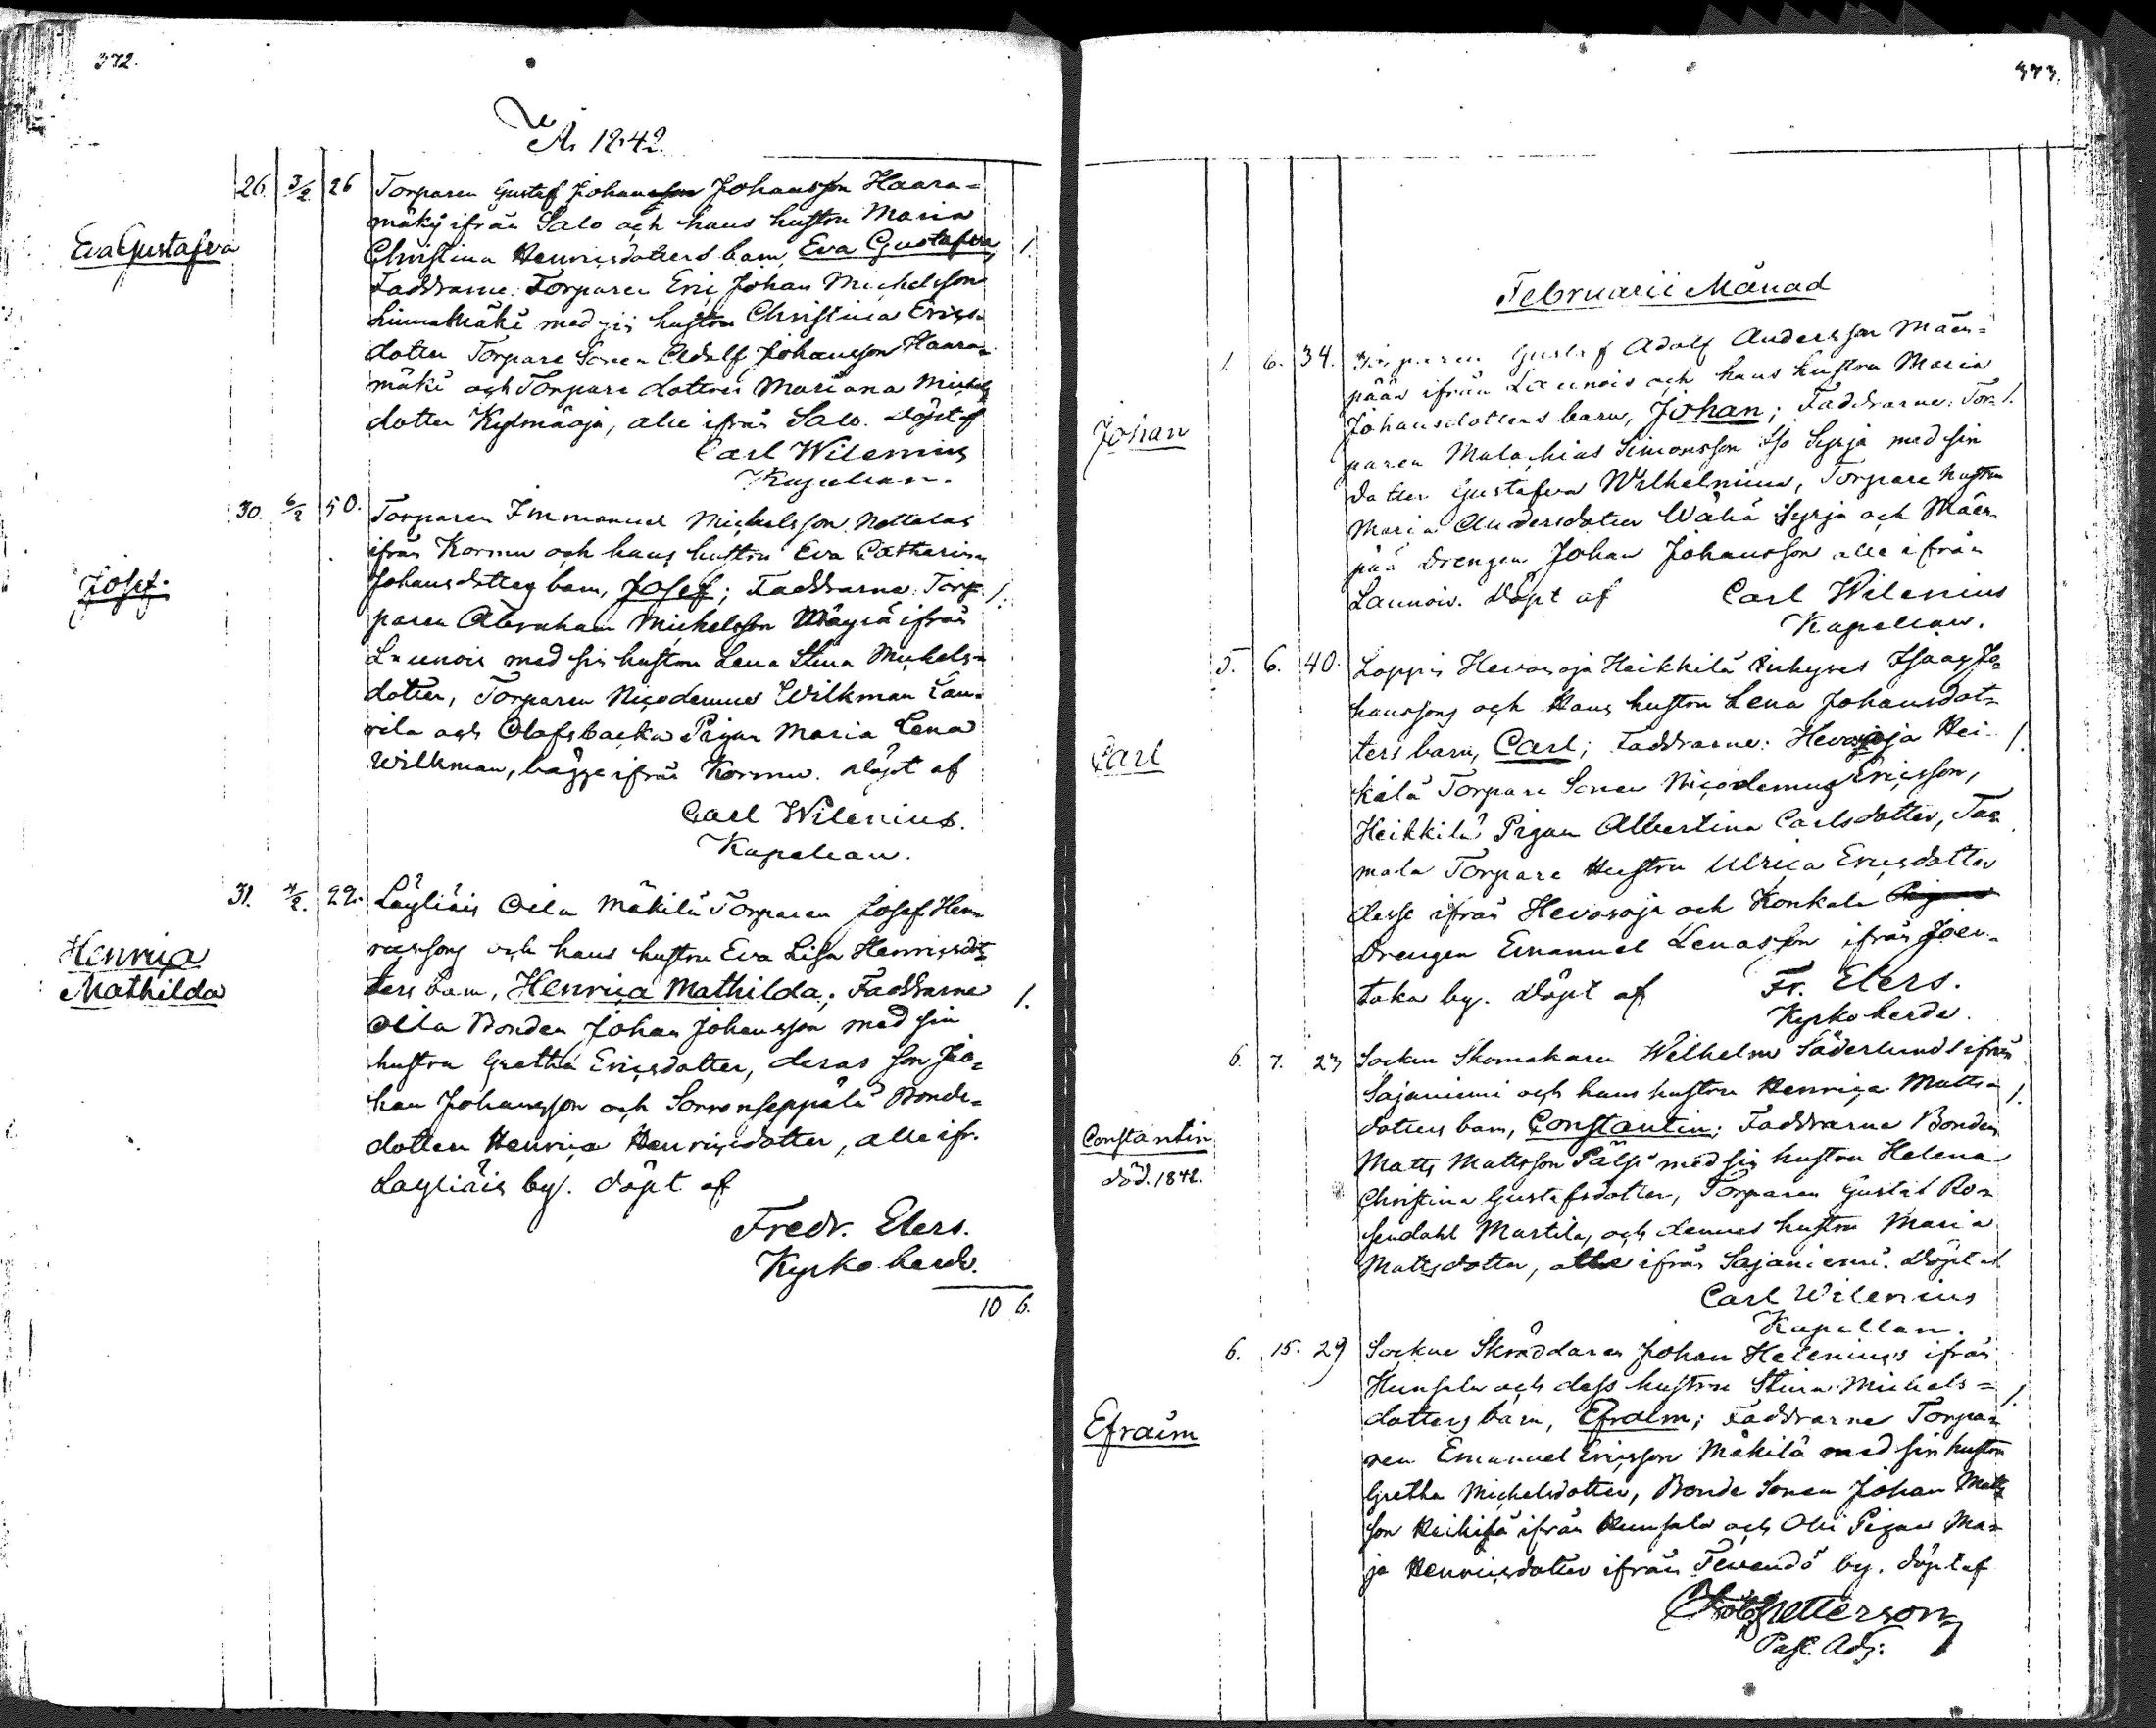 372.
År 1842.
26. 3/2 26 Torparen Gustaf Johansson Johansson Haara=
mäky ifrån Salo och hans hustru Maria
Eva Gustafva
Christina Henricsdotters barn, Eva Gustafva, 1.
Faddrarne: Torparen Eric Johan Michelsson
Linnamäki med sin hustru Christina Erics=
dotter Torpare Sonen Adolf Johansson Haara=
mäki och Torpare dottren Mariana Michels
dotter Kylmäoja, alle ifrån Salo. Döpt af
Carl Wilenius
Kapellan.
30. 6/2 50. Torparen Immanuel Michelsson Nottalas
ifrån Kormu och hans hustru Eva Catharina
Josef.
Johansdotters barn, Josef; Faddrarne: Tor= 1.
paren Abraham Michelsson Mäyrä ifrån
Launois med sin hustru Lena Stina Michels=
dotter, Torparen Nicodemus Wilkman Lau=
rila och Olofsbacka Pigan Maria Lena
Wilkman, bägge ifrån Kormu. Döpt af
Carl Wilenius.
Kapellan.
31. 4/2. 22. Läyliäis Oila Mäkilä Torparen Josef Hen=
ricssons och hans hustru Eva Lisa Henricsdot=
Henrica
Mathilda
ters barn, Henrica Mathilda; Faddrarne 1.
Oila Bonden Johan Johansson med sin
hustru Gretha Ericsdotter, deras son Jo=
han Johansson och Sorronseppälä Bonde=
dotter Henrica Henricsdotter, alle ifr.
Läyliäis by. döpt af
Fredr. Elers.
Kyrkoherde.
10 6.
373.
Februarii Månad
1. 6. 34. Torparen Gustaf Adolf Andersson Mäen=
pääs ifrån Launois och hans hustru Maria
Johan
Johansdotters barn, Johan; Faddrarne: Tor= 1.
paren Malachias Simonsson Iso Syrjä med sin
dotter Gustafva Wilhelmina, Torpare hustru
Maria Andersdotter Wähä Syrjä och Mäen
pää Drengen Johan Johansson alle ifrån
Launois. Döpt af Carl Wilenius
Kapellan.
5. 6. 40. Loppis Hevosoja Heikkilä Inhyses Isaac Jo=
hanssons och hans hustru Lena Johansdot=
Carl
ters barn, Carl; Faddrarne: Hevosoja Hei= 1.
kilä Torpare Sonen Nicodemus Ericsson,
Heikkilä Pigan Albertina Carlsdotter, Tam
mala Torpare Hustru Ulrica Ericsdotter
desse ifrån Hevosoja och Konkala Pigan
Drengen Emanuel Lenasson ifrån Joen=
taka by. Döpt af Fr. Elers.
Kyrkoherde.
6. 7. 23 Socken Skomakaren Wilhelm Söderlunds ifrån
Sajaniemi och hans hustru Henrica Matts= 1.
Constantin
död. 1842.
dotters barn, Constantin; Faddrarne Bonden
Matts Mattsson Pälsi med sin hustru Helena
Christina Gustafsdotter, Torparen Gustaf Ro=
sendahl Martila, och dennes hustru Maria
Mattsdotter, alle ifrån Sajaniemi. Döpt af
Carl Wilenius
Kapellan.
6. 15. 29 Sockne Skräddaren Johan Helenius's ifrån
Hunsala och dess hustru Stina Michels= 1.
Efraim
dotters barn, Efraim; Faddrarne Torpa=
ren Emanuel Ericsson Mäkilä med sin hustru
Gretha Michelsdotter, Bonde Sonen Johan Matts
son ifrån Hunsala och Olli Pigan Ma=
ja Henricsdotter ifrån Tevendö by. döpt af
Petterson
Past. Adj: